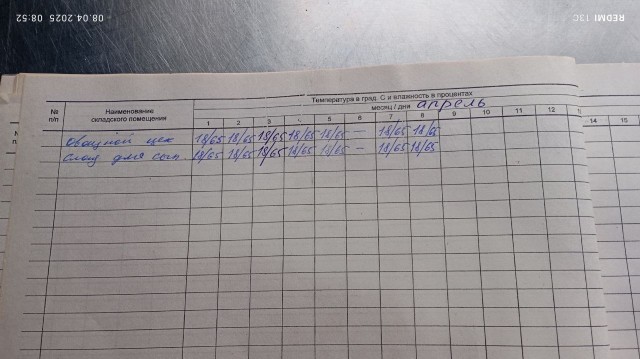 08.04.2025 08:52
REDMI 13C
Температура в град. С и влажность в процентах
№ п/п
Наименование складского помещения
месяц / дни апрель
1 2 3 4 5 6 7 8 9 10 11 12 13 14 15
Овощной цех 18/65 18/65 18/65 18/65 18/65 — 18/65 18/65
Склад для сып 18/65 18/65 18/65 18/65 18/65 — 18/65 18/65